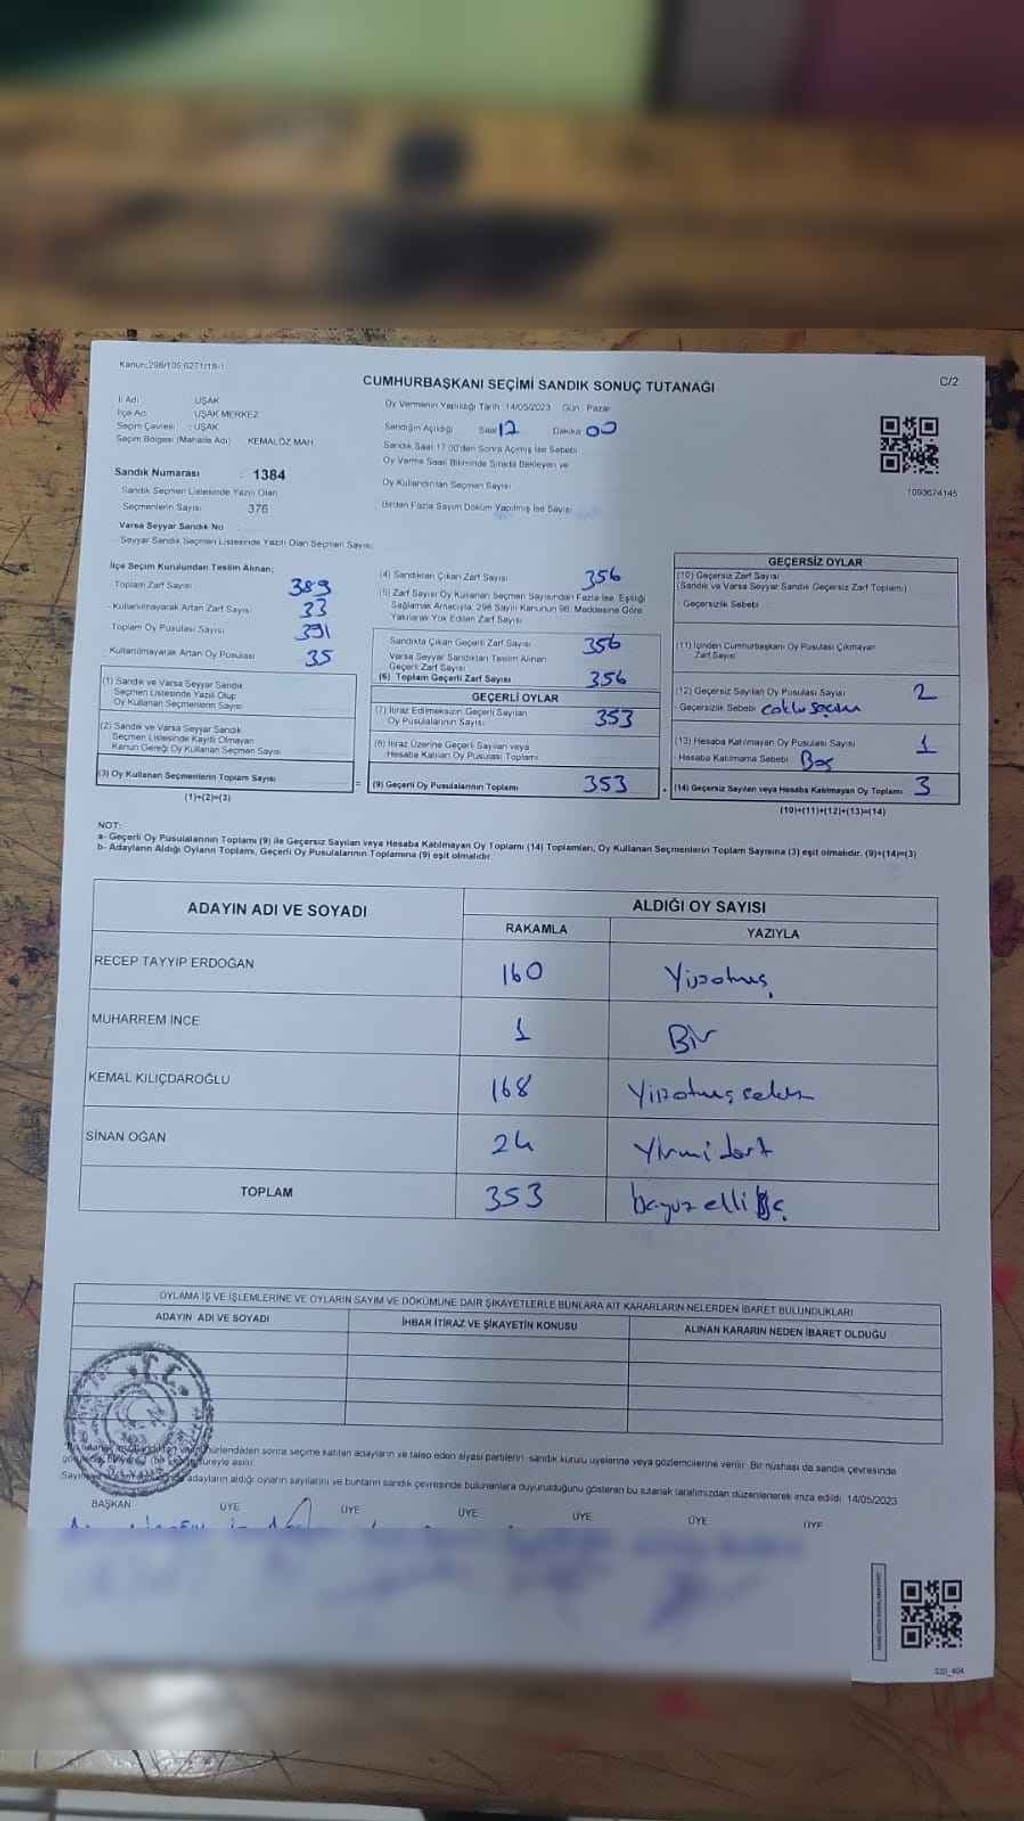 Kanun:298/105;6271/18-1
CUMHURBAŞKANI SEÇİMİ SANDIK SONUÇ TUTANAĞI
C/2
İl Adı UŞAK
İlçe Adı UŞAK MERKEZ
Seçim Çevresi : UŞAK
Seçim Bölgesi (Mahalle Adı) KEMALÖZ MAH
Oy Vermenin Yapıldığı Tarih :14/05/2023 Gün : Pazar
Sandığın Açıldığı Saat 12 Dakika 00
Sandık Saat 17:00'den Sonra Açılmış İse Sebebi
Oy Verme Saati Bitiminde Sırada Bekleyen ve
Oy Kullandırılan Seçmen Sayısı
Birden Fazla Sayım Döküm Yapılmış İse Sayısı
1093674145
Sandık Numarası 1384
Sandık Seçmen Listesinde Yazılı Olan
Seçmenlerin Sayısı 376
Varsa Seyyar Sandık No
Seyyar Sandık Seçmen Listesinde Yazılı Olan Seçmen Sayısı
İlçe Seçim Kurulundan Teslim Alınan;
Toplam Zarf Sayısı 389
Kullanılmayarak Artan Zarf Sayısı 33
Toplam Oy Pusulası Sayısı 391
Kullanılmayarak Artan Oy Pusulası 35
(1) Sandık ve Varsa Seyyar Sandık
Seçmen Listesinde Yazılı Olup
Oy Kullanan Seçmenlerin Sayısı
(2) Sandık ve Varsa Seyyar Sandık
Seçmen Listesinde Kayıtlı Olmayan
Kanun Gereği Oy Kullanan Seçmen Sayısı
(3) Oy Kullanan Seçmenlerin Toplam Sayısı
(1)+(2)=(3)
(4) Sandıktan Çıkan Zarf Sayısı 356
(5) Zarf Sayısı Oy Kullanan Seçmen Sayısından Fazla İse, Eşitliği
Sağlamak Amacıyla, 298 Sayılı Kanunun 98. Maddesine Göre
Yakılarak Yok Edilen Zarf Sayısı
Sandıkta Çıkan Geçerli Zarf Sayısı 356
Varsa Seyyar Sandıktan Teslim Alınan
Geçerli Zarf Sayısı
(6) Toplam Geçerli Zarf Sayısı 356
GEÇERLİ OYLAR
(7) İtiraz Edilmeksizin Geçerli Sayılan
Oy Pusulalarının Sayısı 353
(8) İtiraz Üzerine Geçerli Sayılan veya
Hesaba Katılan Oy Pusulası Toplamı
= (9) Geçerli Oy Pusulalarının Toplamı 353
GEÇERSİZ OYLAR
(10) Geçersiz Zarf Sayısı
(Sandık ve Varsa Seyyar Sandık Geçersiz Zarf Toplamı)
Geçersizlik Sebebi
(11) İçinden Cumhurbaşkanı Oy Pusulası Çıkmayan
Zarf Sayısı
(12) Geçersiz Sayılan Oy Pusulası Sayısı 2
Geçersizlik Sebebi çoklu seçim
(13) Hesaba Katılmayan Oy Pusulası Sayısı 1
Hesaba Katılmama Sebebi Boş
+ (14) Geçersiz Sayılan veya Hesaba Katılmayan Oy Toplamı 3
(10)+(11)+(12)+(13)=(14)
NOT:
a- Geçerli Oy Pusulalarının Toplamı (9) ile Geçersiz Sayılan veya Hesaba Katılmayan Oy Toplamı (14) Toplamları, Oy Kullanan Seçmenlerin Toplam Sayısına (3) eşit olmalıdır. (9)+(14)=(3)
b- Adayların Aldığı Oyların Toplamı, Geçerli Oy Pusulalarının Toplamına (9) eşit olmalıdır.
ADAYIN ADI VE SOYADI ALDIĞI OY SAYISI
RAKAMLA YAZIYLA
RECEP TAYYİP ERDOĞAN 160 Yüzatmış
MUHARREM İNCE 1 Bir
KEMAL KILIÇDAROĞLU 168 Yüzatmış sekiz
SİNAN OĞAN 24 Yirmi dört
TOPLAM 353 elli
OYLAMA İŞ VE İŞLEMLERİNE VE OYLARIN SAYIM VE DÖKÜMÜNE DAİR ŞİKAYETLERLE BUNLARA AİT KARARLARIN NELERDEN İBARET BULUNDUKLARI
ADAYIN ADI VE SOYADI İHBAR İTİRAZ VE ŞİKAYETİN KONUSU ALINAN KARARIN NEDEN İBARET OLDUĞU
T.C.
sonra seçime katılan adayların ve talep eden siyasi partilerin sandık kurulu üyelerine veya gözlemcilerine verilir. Bir nüshası da sandık çevresinde
adayların aldığı oyların sayılarını ve bunların sandık çevresinde bulunanlara duyurulduğunu gösteren bu tutanak tarafımızdan düzenlenerek imza edildi. 14/05/2023
BAŞKAN ÜYE ÜYE ÜYE ÜYE ÜYE ÜYE